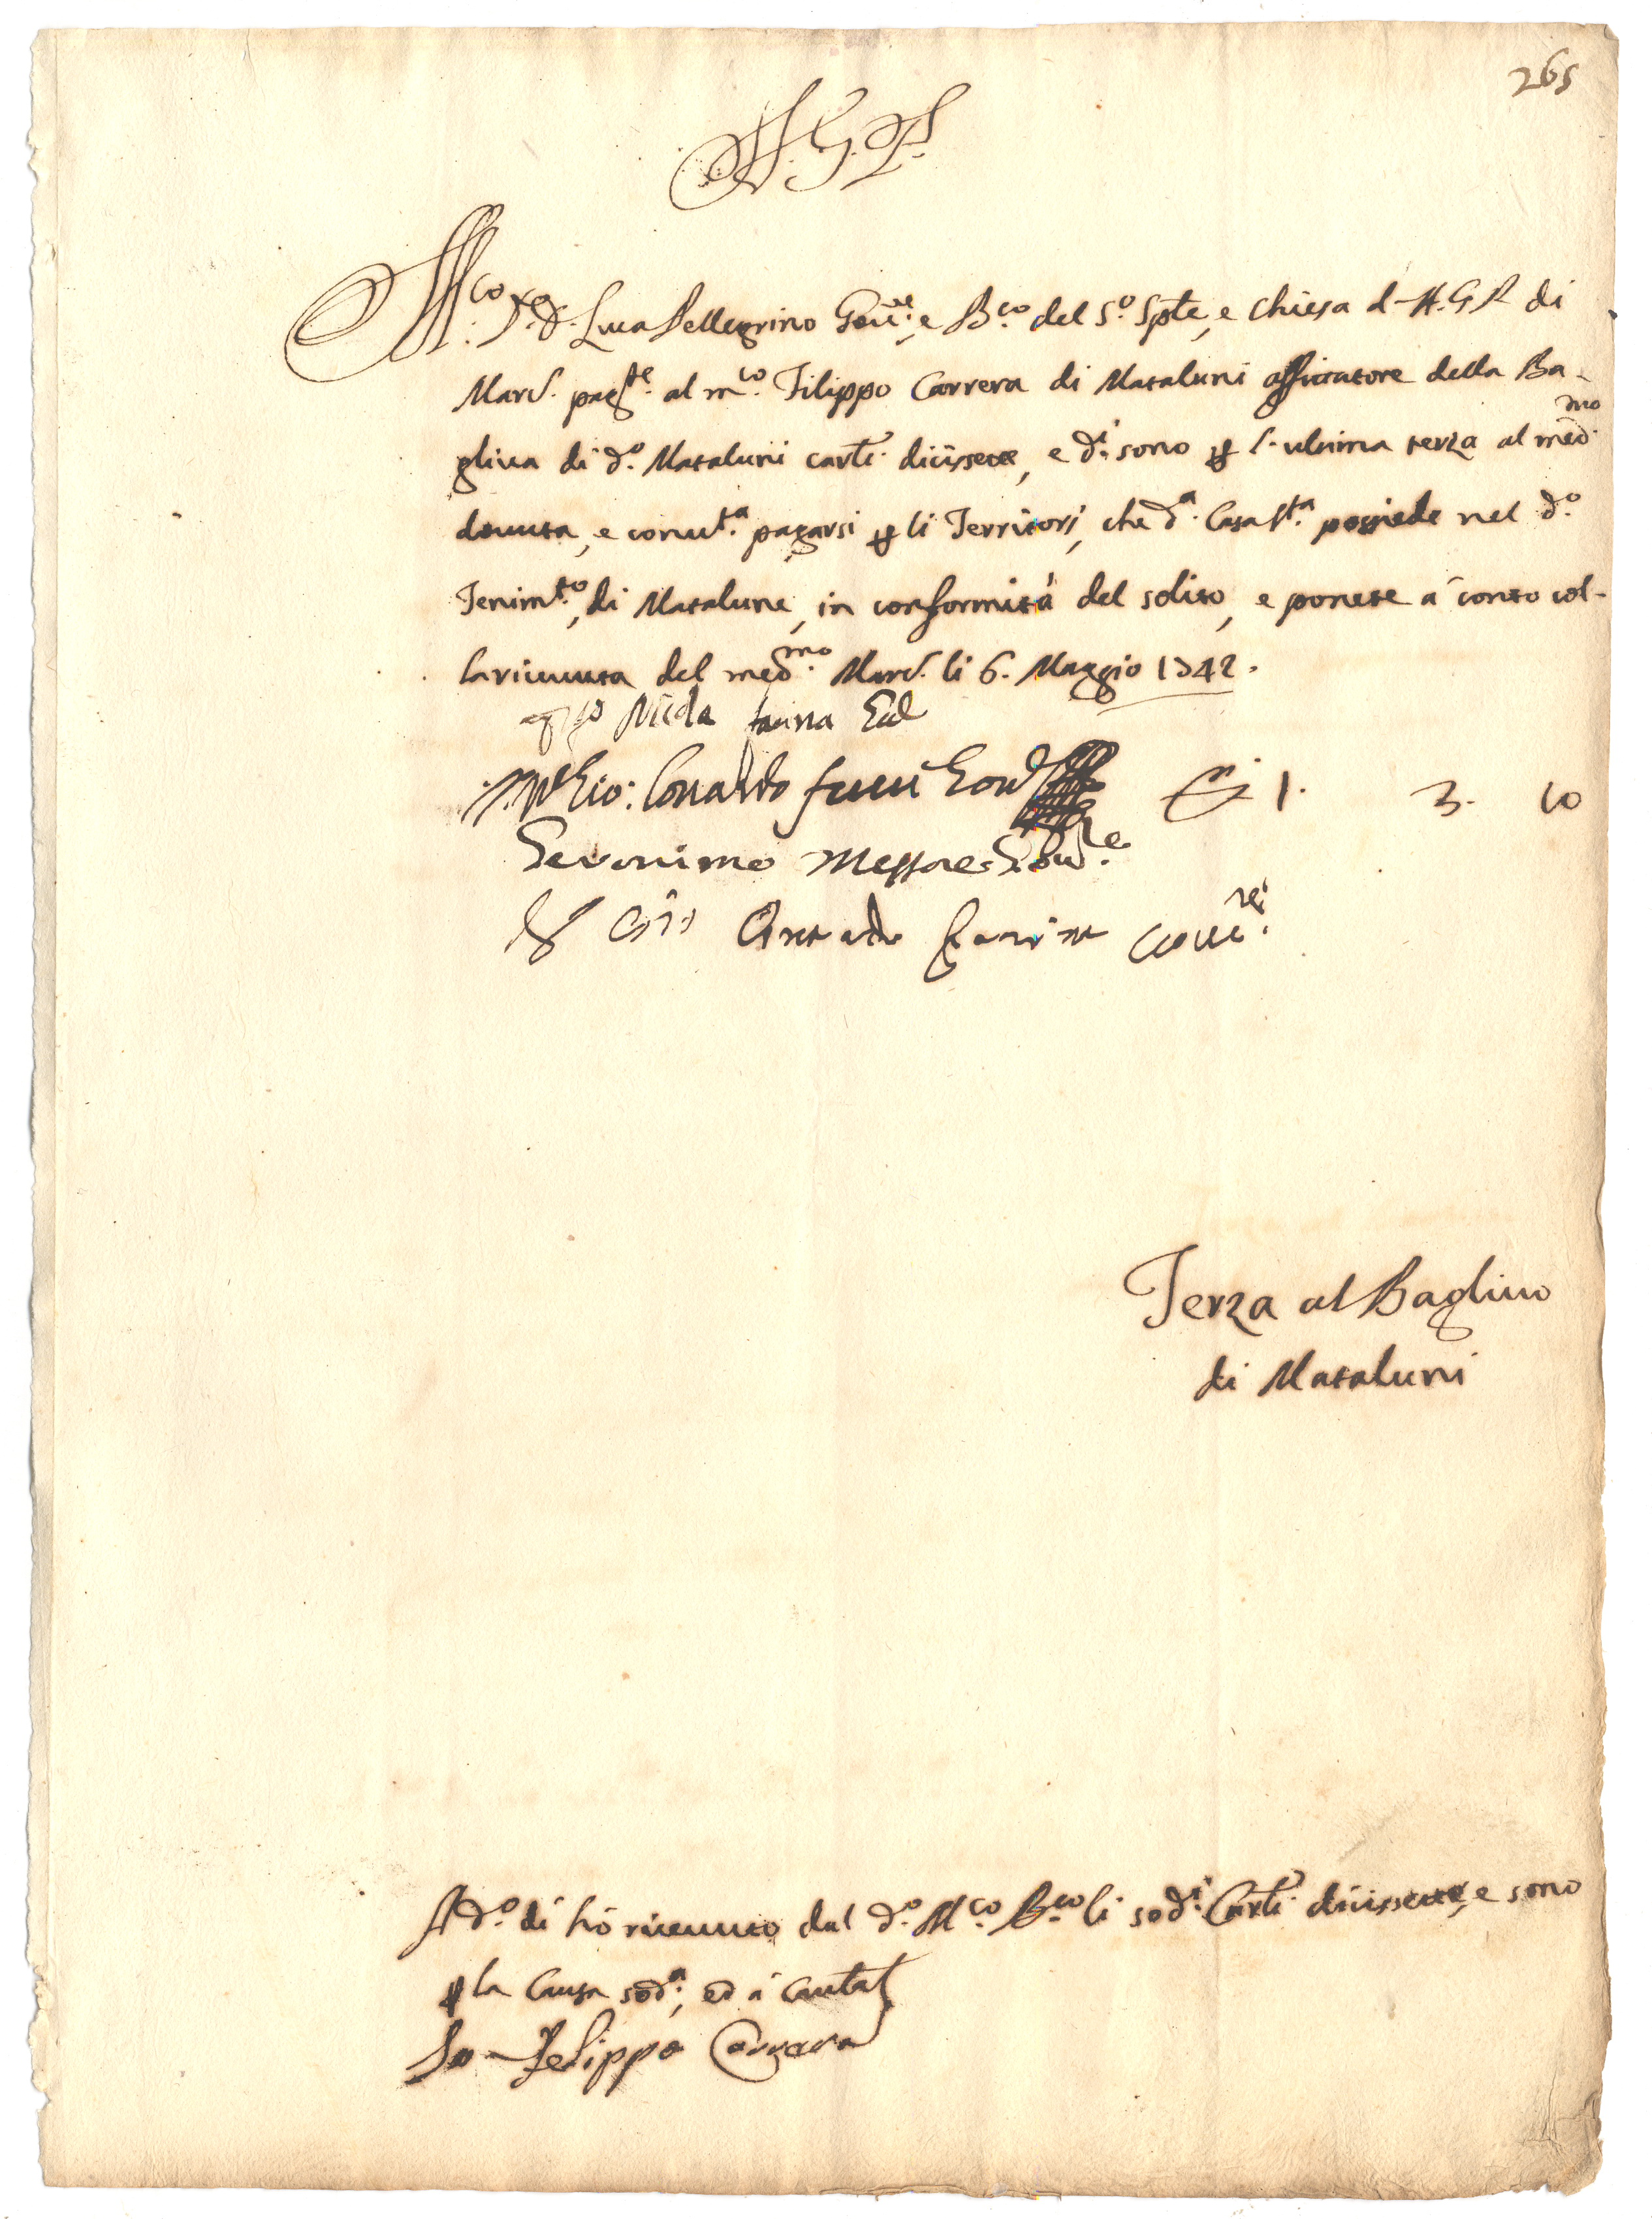 265
A. G. P.
M.co D.r D. Luca Pellegrino Gov.re, e B.co del S.o Spte, e Chiesa d. A. G. P. di
Marc. pag.te al m.co Filippo Carrera di Mataluni affittatore della Ba-
gliva di d.o Mataluni carli. diciissette, e d.i sono p l'ultima terza al med.mo
dovuta, e convt.a pagarsi p li Territorj, che d.a Casa S.ta possiede nel d.o
Tenimt.o, di Matalune, in conformità del solito, e ponete à conto col-
la ricivuta del med.mo Marc. li 6. Maggio 1742.
Gio: Corrado
1. 3. 10
Geronimo Messore
Terza al Baglivo
di Mataluni
A d.o di hò ricevuto dal d.o M.co B.co li sod.i Carli. diciissette, e sono
p la Causa sod.a, ed à cautal
Io Felippo Carrara